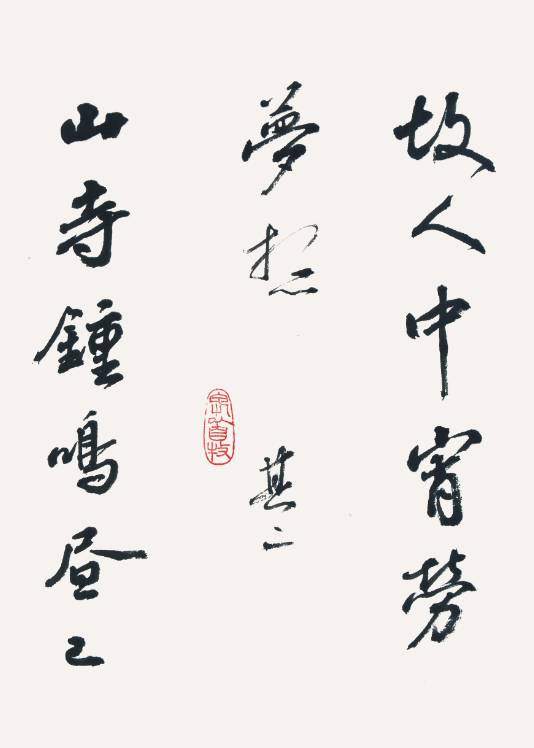 故人中宵勞
夢想 其二
山寺鍾鳴昼已